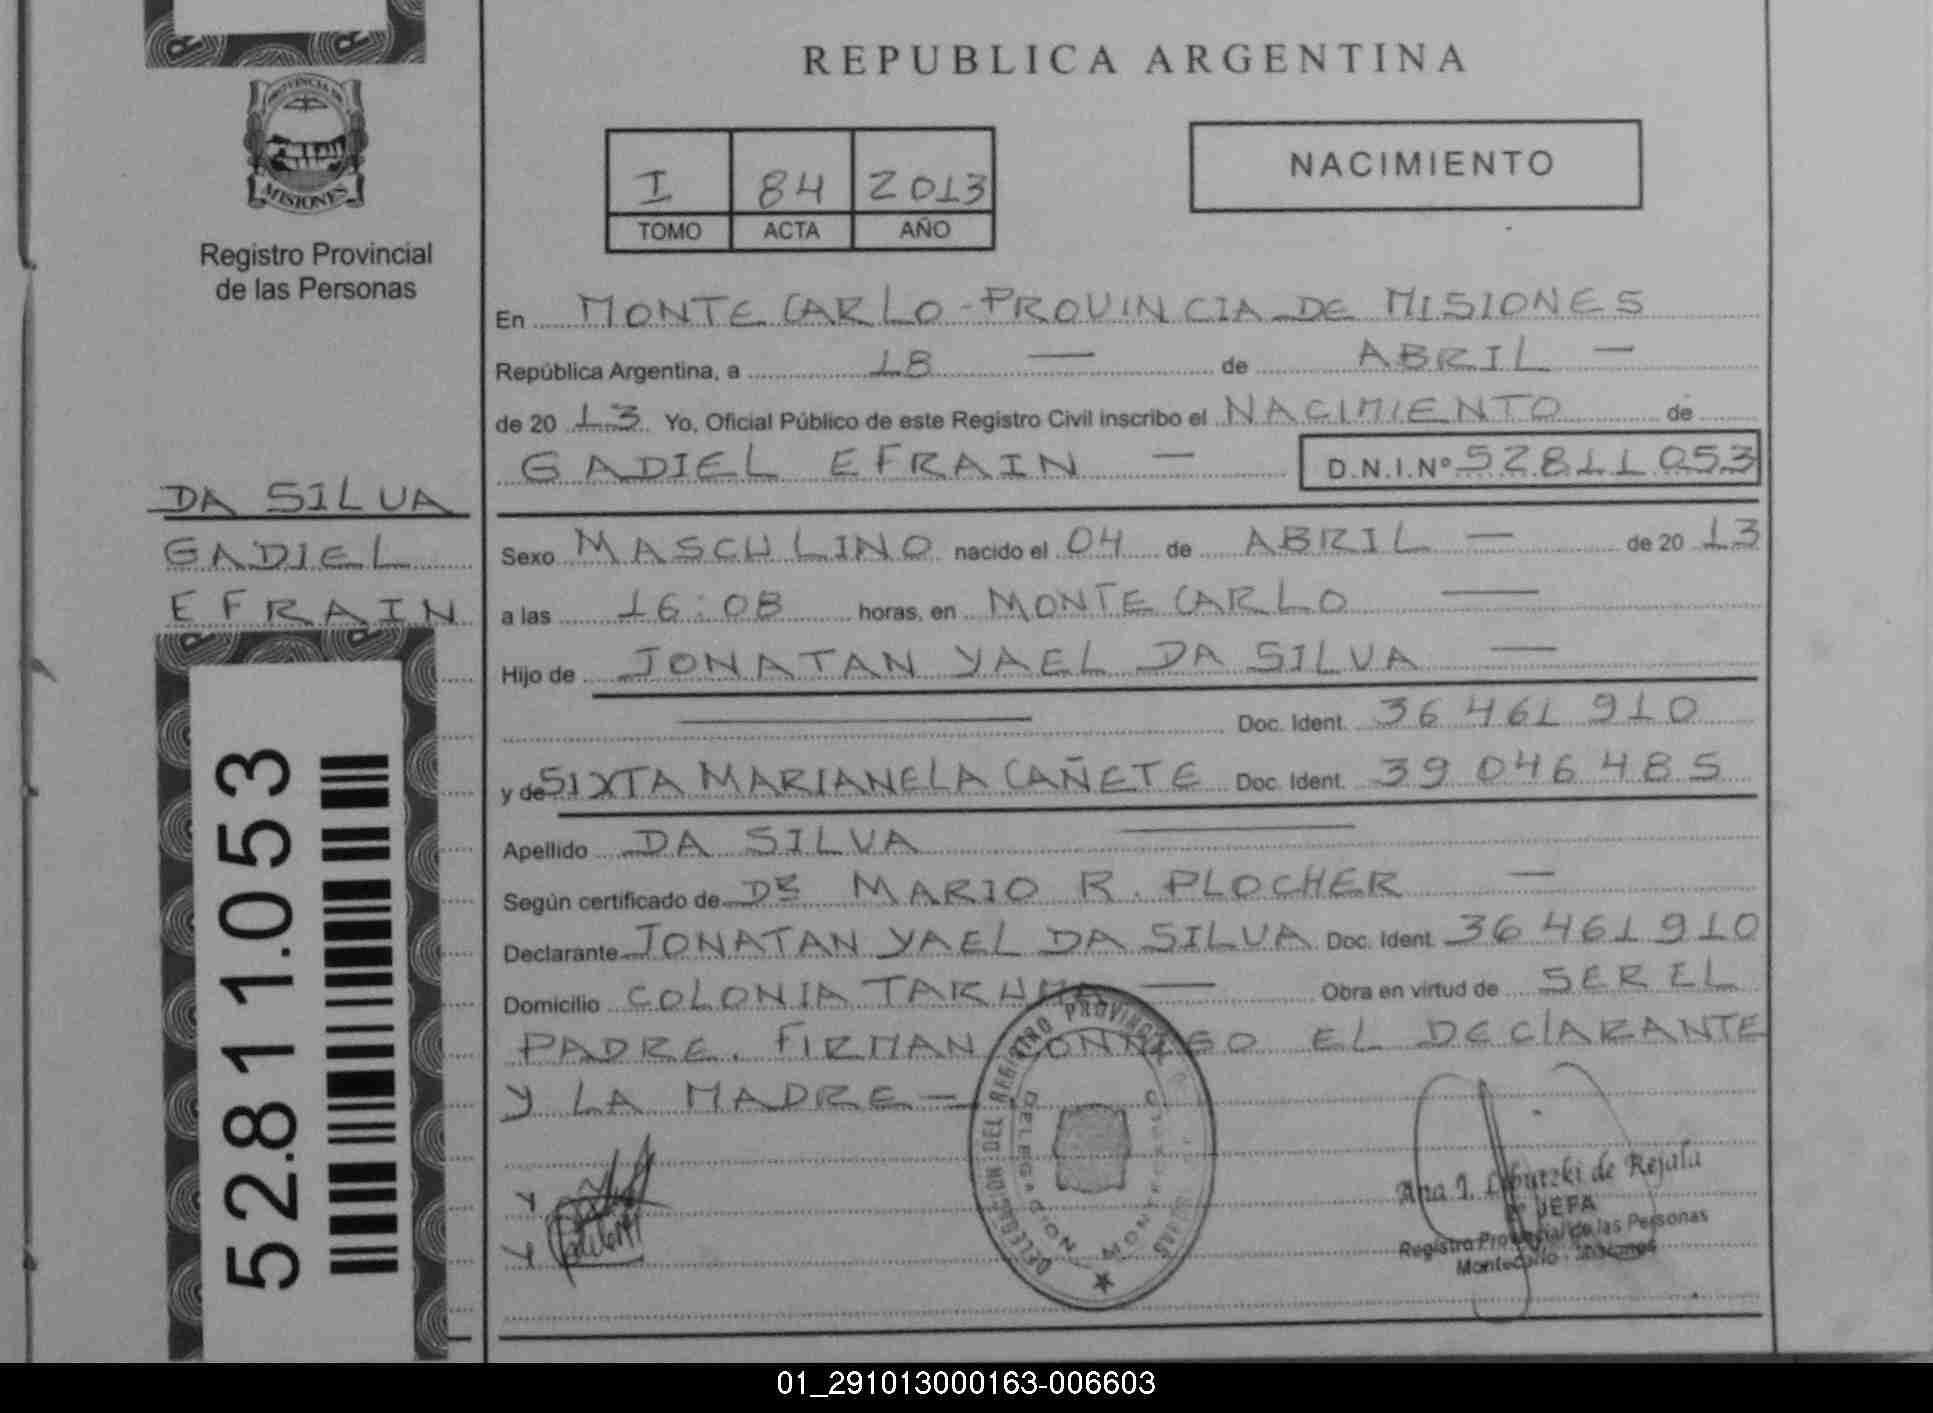 REPUBLICA ARGENTINA
PROVINCIA DE
MISIONES
Registro Provincial
de las Personas
I 84 2013
TOMO ACTA AÑO
NACIMIENTO
En MONTECARLO - PROVINCIA DE MISIONES
República Argentina, a 18 — de ABRIL —
de 20 13 Yo, Oficial Público de este Registro Civil inscribo el NACIMIENTO de
GADIEL EFRAIN — D.N.I.Nº 52811053
DA SILVA
GADIEL
EFRAIN
Sexo MASCULINO nacido el 04 de ABRIL — de 20 13
a las 16:08 horas, en MONTECARLO —
Hijo de JONATAN YAEL DA SILVA —
— Doc. Ident. 36 461 910
y de SIXTA MARIANELA CAÑETE Doc. Ident. 39 046 485
Apellido DA SILVA —
Según certificado de DR MARIO R. PLOCHER —
Declarante JONATAN YAEL DA SILVA Doc. Ident. 36 461 910
Domicilio COLONIA TARUMA — Obra en virtud de SER EL
PADRE. FIRMAN CONMIGO EL DECLARANTE
Y LA MADRE —
52.811.053
DELEGACION DEL REGISTRO PROVINCIAL
DELEGACION MONTECARLO
Ana I. de Rejala
JEFA
Registro Provincial de las Personas
Montecarlo - Misiones
01_291013000163-006603